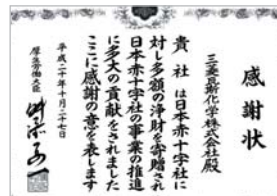 感謝状
三菱瓦斯化学株式会社殿
貴社は日本赤十字社に
対し多額の浄財を寄贈され
日本赤十字社の事業の推進
に多大の貢献をされました
ここに感謝の意を表します
平成二十年十月二十七日
厚生労働大臣
舛添要一